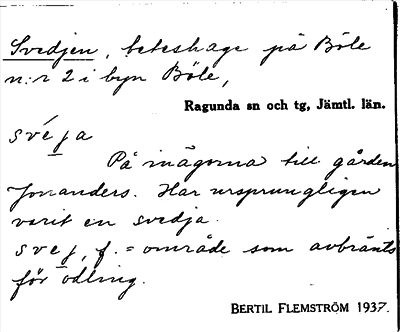 Svedjen, beteshage på Böle
n:r 2 i byn Böle,
Ragunda sn och tg, Jämtl. län.
své̠ja
På inägorna till gården
Jonanders. Har ursprungligen
varit en svedja.
sve̠j, f. = område som avbränts
för odling.
BERTIL FLEMSTRÖM 1937.